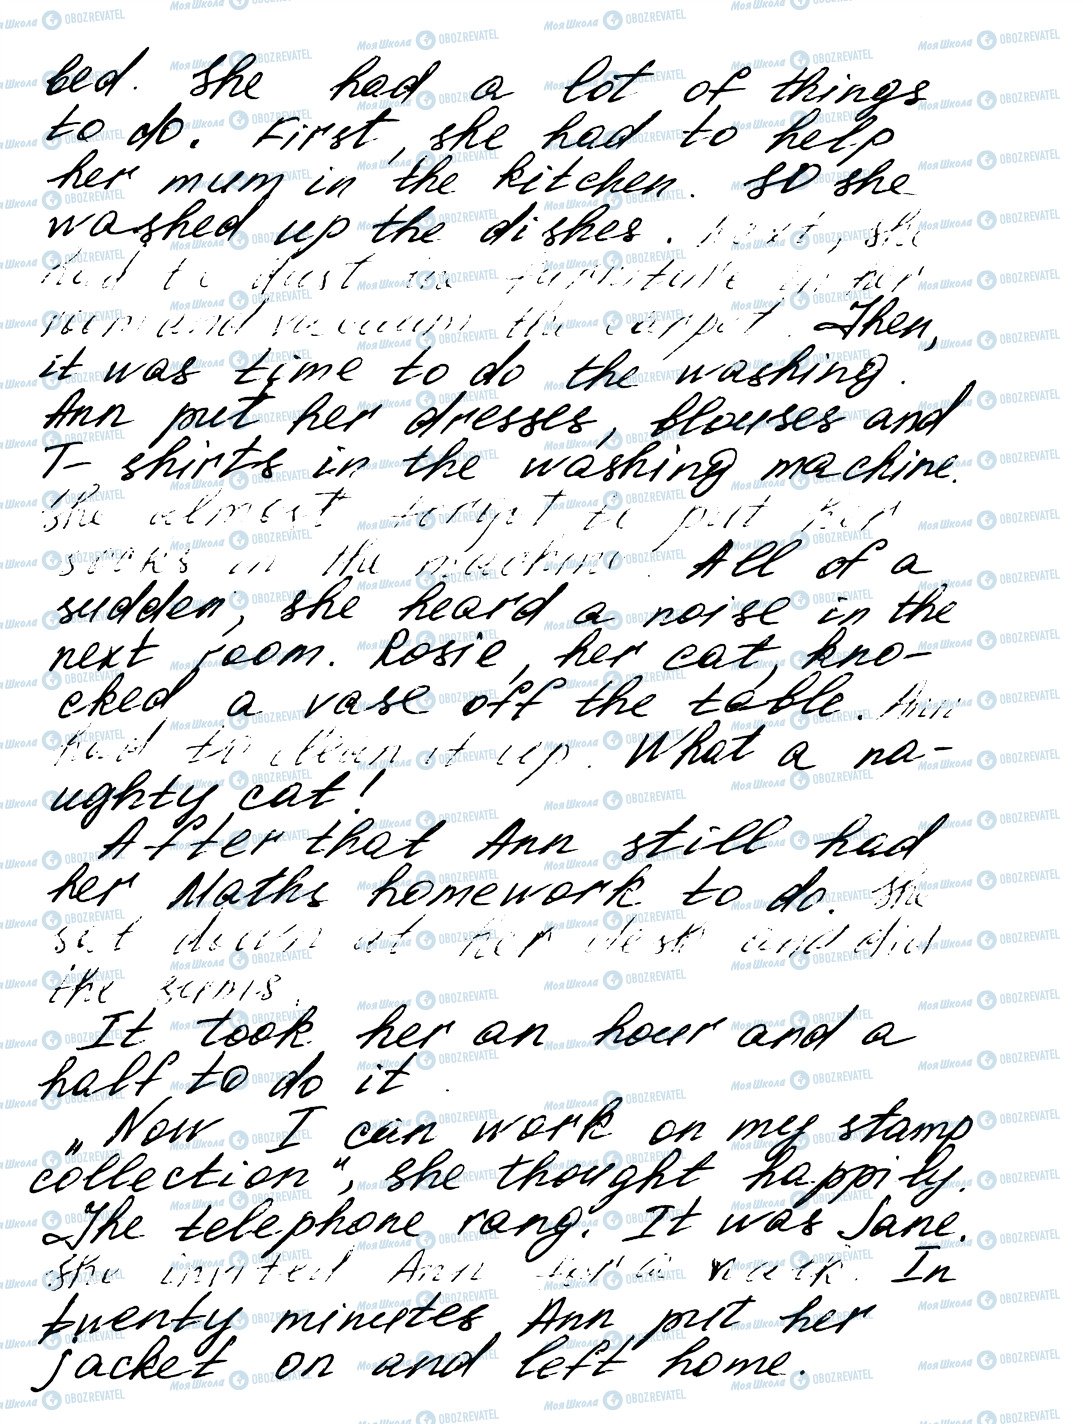 bed. She had a lot of things
to do. First, she had to help
her mum in the kitchen. So she
washed up the dishes. Next, she
had to dust the furniture in her
room and vacuum the carpet. Then,
it was time to do the washing.
Ann put her dresses, blouses and
T-shirts in the washing machine.
She almost forgot to put her
socks in the machine. All of a
sudden, she heard a noise in the
next room. Rosie, her cat, kno-
cked a vase off the table. Ann
had to clean it up. What a na-
ughty cat!
After that Ann still had
her Maths homework to do. She
sat down at her desk and did
the sums.
It took her an hour and a
half to do it.
„Now I can work on my stamp
collection“, she thought happily.
The telephone rang. It was Jane.
She invited Ann for a walk. In
twenty minutes Ann put her
jacket on and left home.